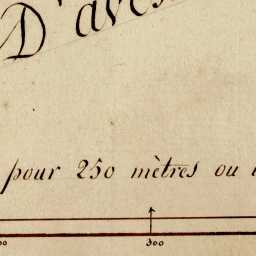 D'aves
pour 250 mètres ou
300